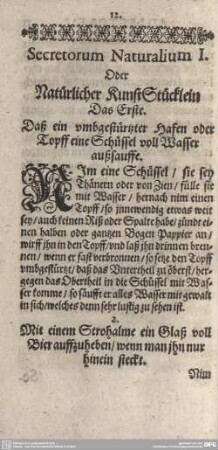 12.
Secretorum Naturalium I.
Oder
Natürlicher KunstStücklein
Das Erste.
Daß ein vmbgestürtzter Hafen oder
Topff eine Schüssel voll Wasser
außsauffe.
NIm eine Schüssel / sie sey
Thänern oder von Zien / fülle sie
mit Wasser / hernach nim einen
Topff / so innewendig etwas weit
sey / auch keinen Riß oder Spalte habe / zünd einen
halben oder gantzen Bogen Pappier an /
wirff ihn in den Topff / vnd laß jhn drinnen brennen
/ wenn er fast verbronnen / so setze den Topff
vmbgestürtzt / daß das Vntertheil zu öberst / hergegen
das Obertheil in die Schüssel mit Wasser
komme / so säufft er alles Wasser mit gewalt
in sich / welches denn sehr lustig zu sehen ist.
2.
Mit einem Strohalme ein Glaß voll
Bier auffzuheben / wenn man jhn nur
hinein steckt.
Nim